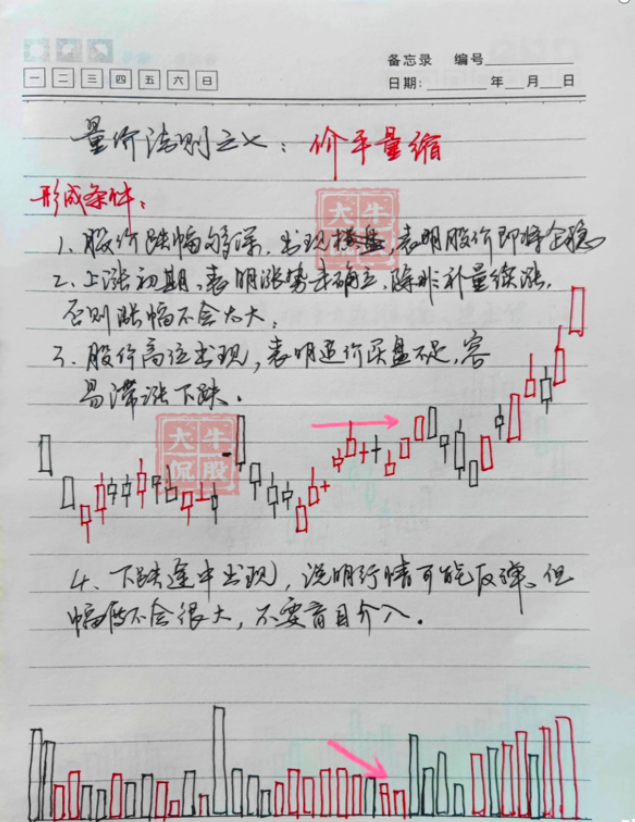 备忘录 编号
一 二 三 四 五 六 日
日期: 年 月 日
量价法则之七：价平量缩
形成条件：
1、股价跌幅够深，出现横盘，表明股价即将企稳
2、上涨初期，表明涨势未确立，除非补量续涨，
否则涨幅不会太大；
3、股价高位出现，表明追价买盘不足，容
易滞涨下跌。
大牛
侃股
4、下跌途中出现，说明行情可能反弹。但
幅度不会很大，不要盲目介入。